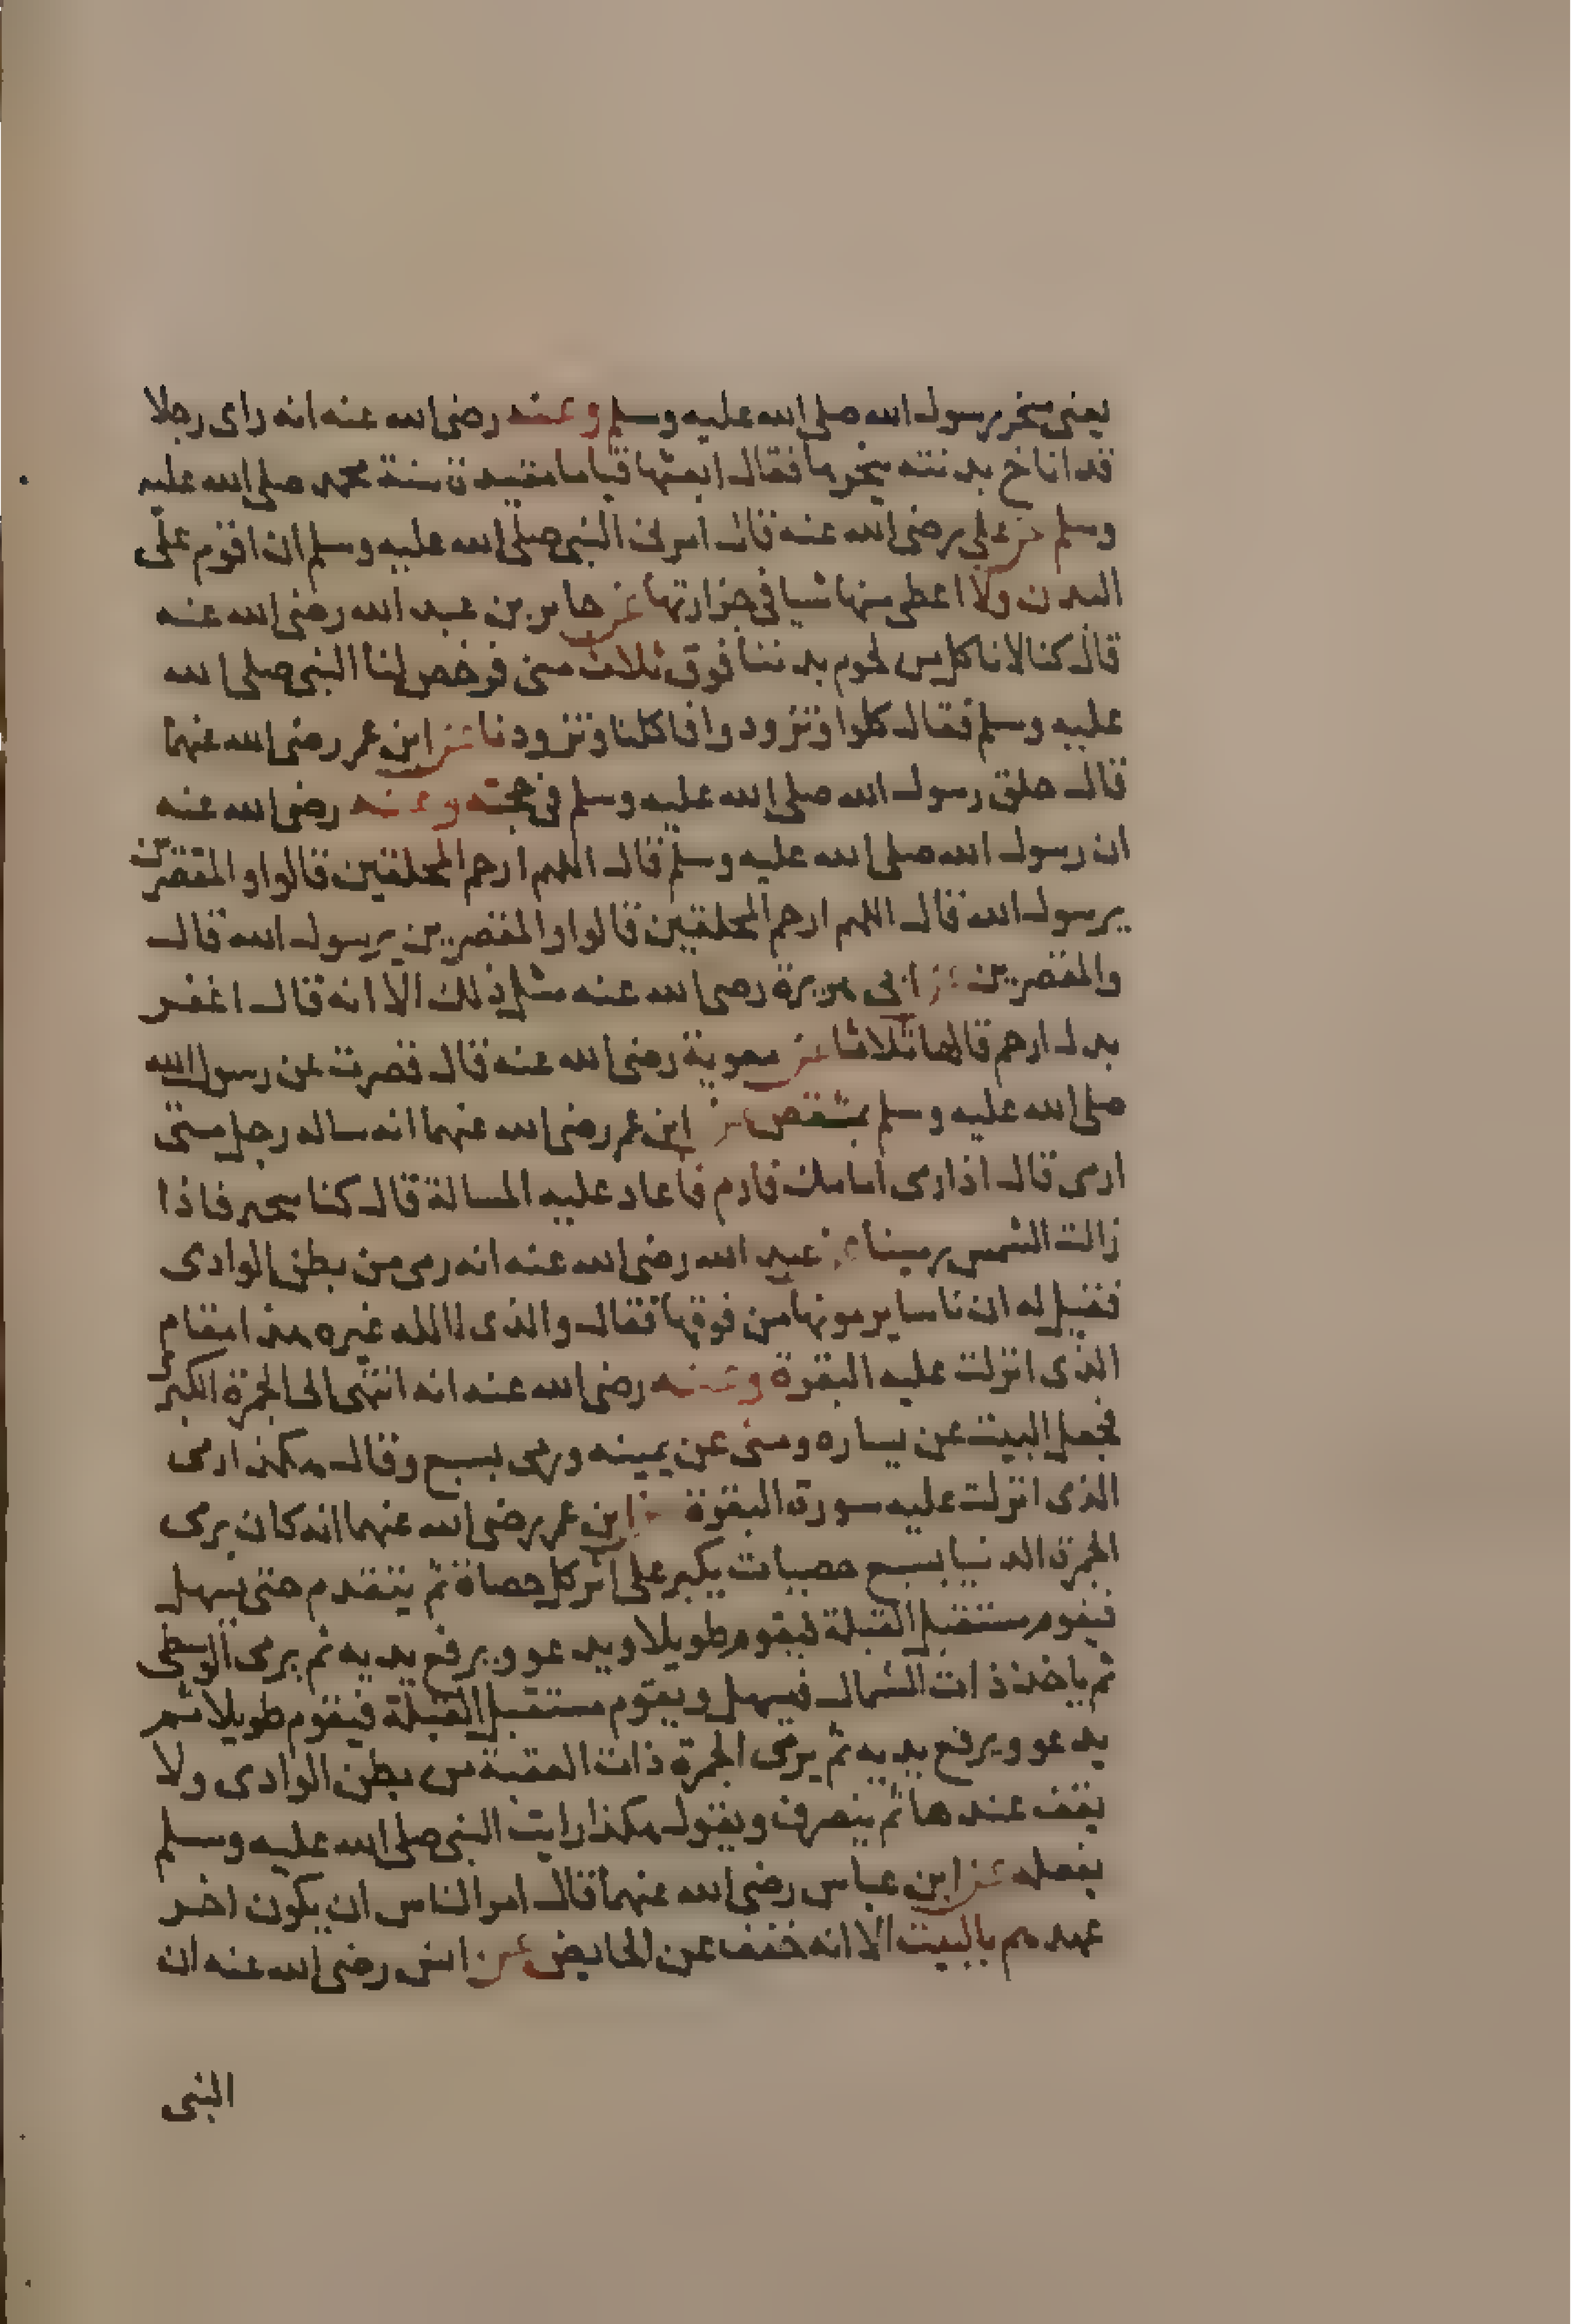 يعنى منحر رسول الله صلى الله عليه وسلم وعنه رضى الله عنه انه راى رجلا
قد اناخ بدنته ينحرها فقال ابعثها قياما مقيدة سنة محمد صلى الله عليه
وسلم عن على رضى الله عنه قال امرنى النبى صلى الله عليه وسلم ان اقوم على
البدن ولا اعطى منها شيا فى جزارتها عن جابر بن عبد الله رضى الله عنه
قال كنا لا ناكل من لحوم بدننا فوق ثلاث منى فرخص لنا النبى صلى الله
عليه وسلم فقال كلوا وتزودوا فاكلنا وتزودنا عن ابن عمر رضى الله عنهما
قال حلق رسول الله صلى الله عليه وسلم فى حجته وعنه رضى الله عنه
ان رسول الله صلى الله عليه وسلم قال اللهم ارحم المحلقين قالوا والمقصرين
يرسول الله قال اللهم ارحم المحلقين قالوا والمقصرين يرسول الله قال
والمقصرين عن ابى هريرة رضى الله عنه مثل ذلك الا انه قال اغفر
بدل ارحم قالها ثلاثا عن معوية رضى الله عنه قال قصرت عن رسول الله
صلى الله عليه وسلم بمشقص عن ابن عمر رضى الله عنهما انه ساله رجل متى
ارمى قال اذا رمى امامك فارم فاعاد عليه المسالة قال كنا نتحين فاذا
زالت الشمس رمينا عن عبد الله رضى الله عنه انه رمى من بطن الوادى
فقيل له ان ناسا يرمونها من فوقها فقال والذى لا اله غيره هذا مقام
الذى انزلت عليه البقرة وعنه رضى الله عنه انه انتهى الى الجمرة الكبرى
فجعل البيت عن يساره ومنى عن يمينه ورمى بسبع وقال هكذا رمى
الذى انزلت عليه سورة البقرة عن ابن عمر رضى الله عنهما انه كان يرمى
الجمرة الدنيا بسبع حصيات يكبر على اثر كل حصاة ثم يتقدم حتى يسهل
فيقوم مستقبل القبلة فيقوم طويلا ويدعو ويرفع يديه ثم يرمى الوسطى
ثم ياخذ ذات الشمال فيسهل ويقوم مستقبل القبلة فيقوم طويلا ثم
يدعو ويرفع يديه ثم يرمى الجمرة ذات العقبة من بطن الوادى ولا
يقف عندها ثم ينصرف ويقول هكذا رايت النبى صلى الله عليه وسلم
يفعله عن ابن عباس رضى الله عنهما قال امر الناس ان يكون اخر
عهدهم بالبيت الا انه خفف عن الحايض عن انس رضى الله عنه ان
النبى